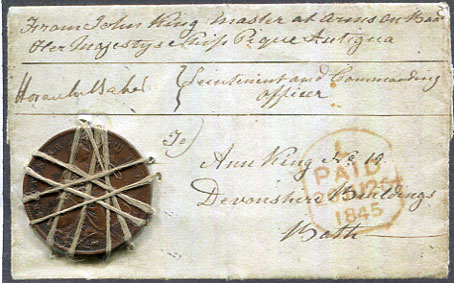 From John King Master at Arms on Boa
Her Majestys Ship Pique Antigua
Lieutenient and Commanding
officer
To
Ann King No 19
Devonshire Buildings
Bath
1
PAID
1845